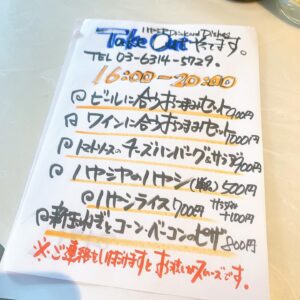 ハヤシヤ Drink and Dishes
Take Out やってます。
TEL 03-6314-5729.
16:00-20:00
ビールに合うおつまみセット 900円
ワインに合うおつまみセット 1000円
トマトソースのチーズハンバーグ&サラダ 900円
ハヤシヤのハヤシ(単品) 500円
ハヤシライス 700円 サラダ付 +100円
新じゃがとコーン・ベーコンのピザ 800円
※ご連絡をいただけますとお渡しがスムーズです。